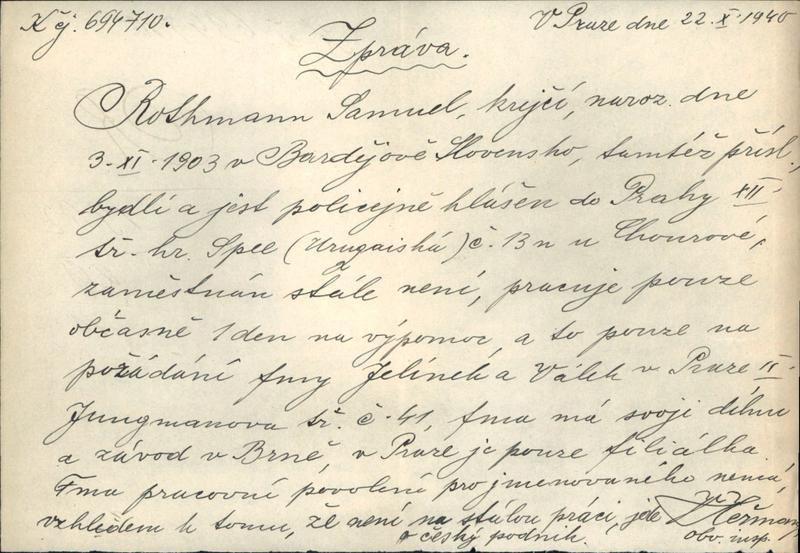 K čj. 694710.
V Praze dne 22.X.1940
Zpráva.
Rothmann Samuel, krejčí, naroz. dne
3.XI.1903 v Bardějově Slovensko, tamtéž přísl.,
bydlí a jest policejně hlášen do Prahy XII.
tř. hr. Spee (Urugaiská) č. 13 n u Chourové,
zaměstnán stále není, pracuje pouze
občasně 1 den na výpomoc, a to pouze na
požádání fmy Jelínek a Válek v Praze II.
Jungmanova tř. č. 41, fma má svoji dílnu
a závod v Brně v Praze je pouze filiálka.
Fma pracovní povolení pro jmenovaného nemá,
vzhledem k tomu, že není na stálou práci, jde
o český podnik.
Heřman
obv. insp.